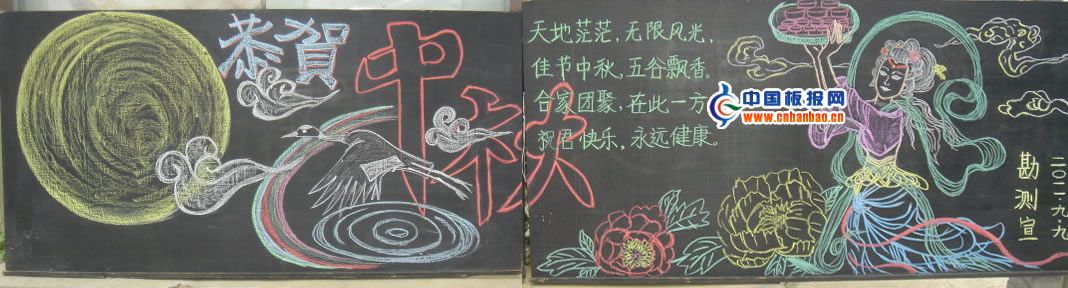 恭賀
中秋
天地茫茫，无限风光，
佳节中秋，五谷飘香。
合家团聚，在此一方
祝君快乐，永远健康。
中国板报网
www.cnbanbao.cn
勘测宣
二〇一一.九.九